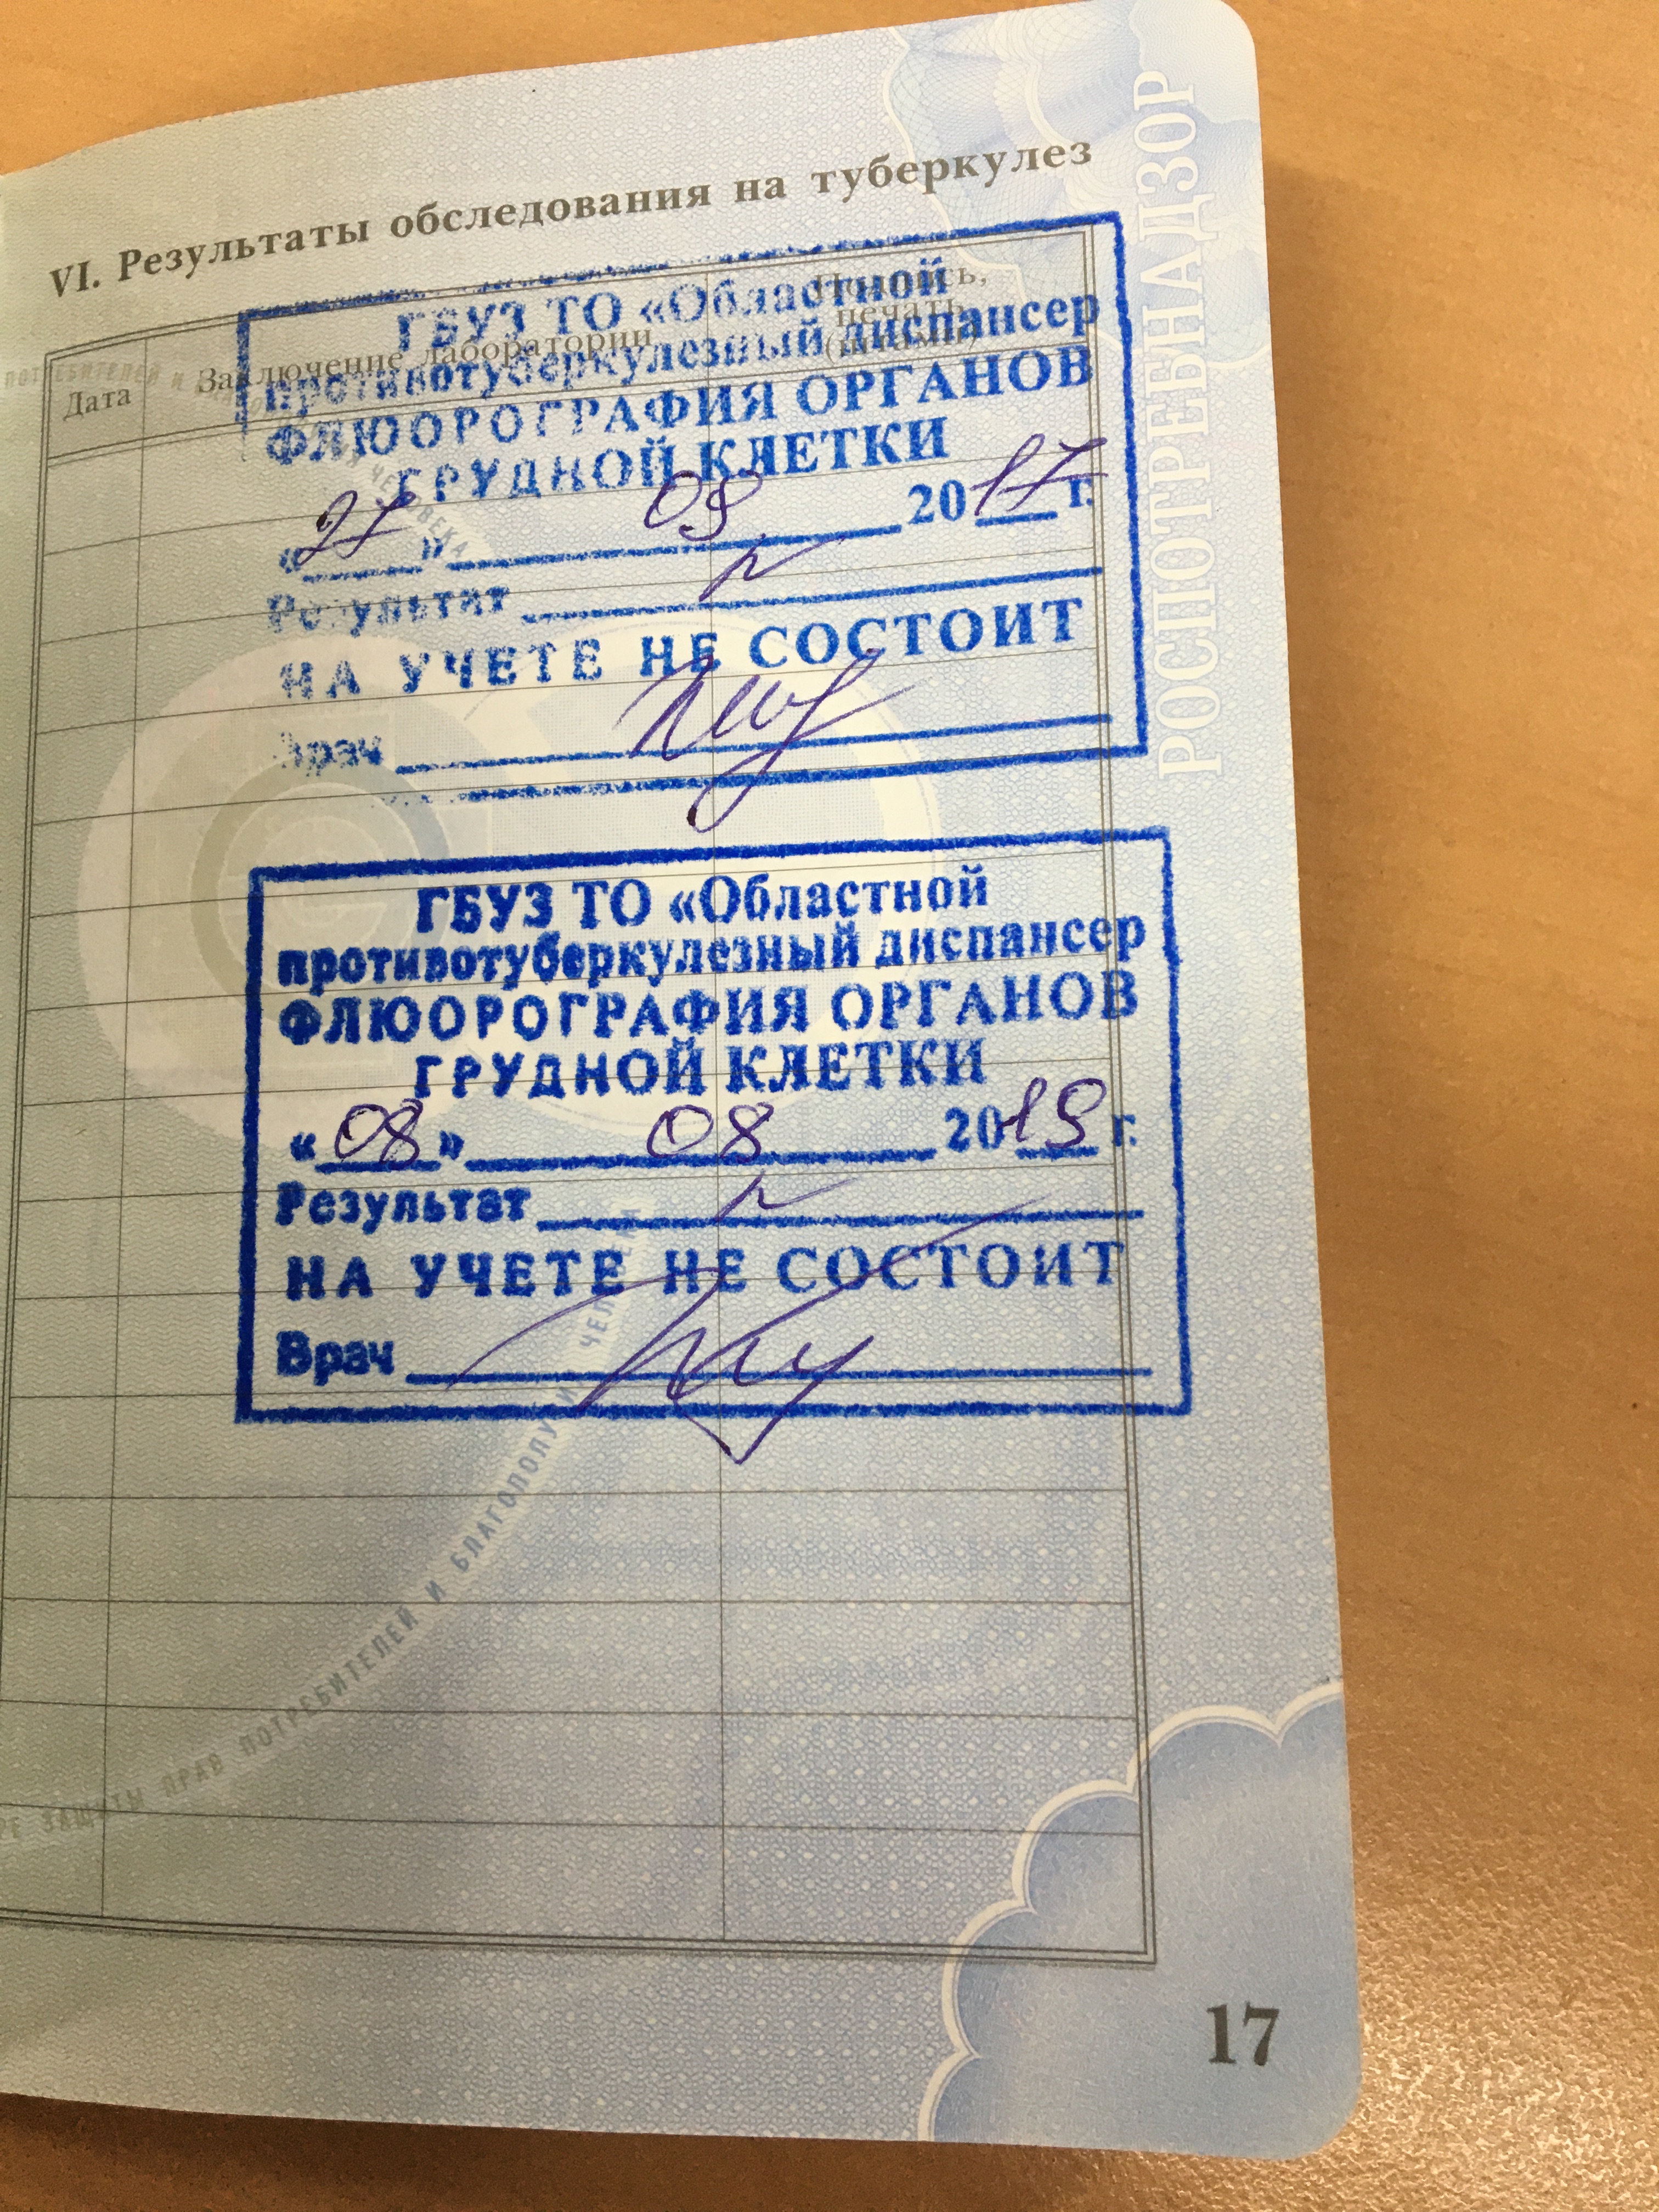 VI. Результаты обследования на туберкулез
Дата
Заключение лаборатории
Подпись,
печать
(штамп)
ГБУЗ ТО «Областной
противотуберкулезный диспансер
ФЛЮОРОГРАФИЯ ОРГАНОВ
ГРУДНОЙ КЛЕТКИ
«27» 2017 г.
Результат
НА УЧЕТЕ НЕ СОСТОИТ
Врач
ГБУЗ ТО «Областной
противотуберкулезный диспансер
ФЛЮОРОГРАФИЯ ОРГАНОВ
ГРУДНОЙ КЛЕТКИ
«08» 08 2019 г.
Результат
НА УЧЕТЕ НЕ СОСТОИТ
Врач
РОСПОТРЕБНАДЗОР
ЗАЩИТЫ ПРАВ ПОТРЕБИТЕЛЕЙ И БЛАГОПОЛУЧИЯ ЧЕЛОВЕКА
17